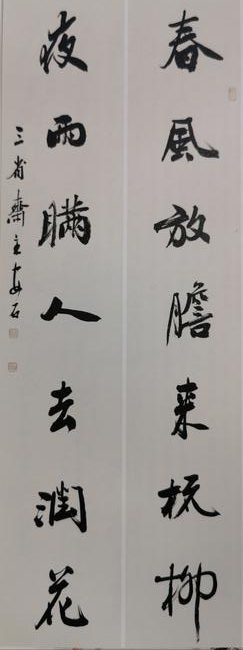 春風放膽来梳柳
夜雨瞞人去潤花
三省齋主安石